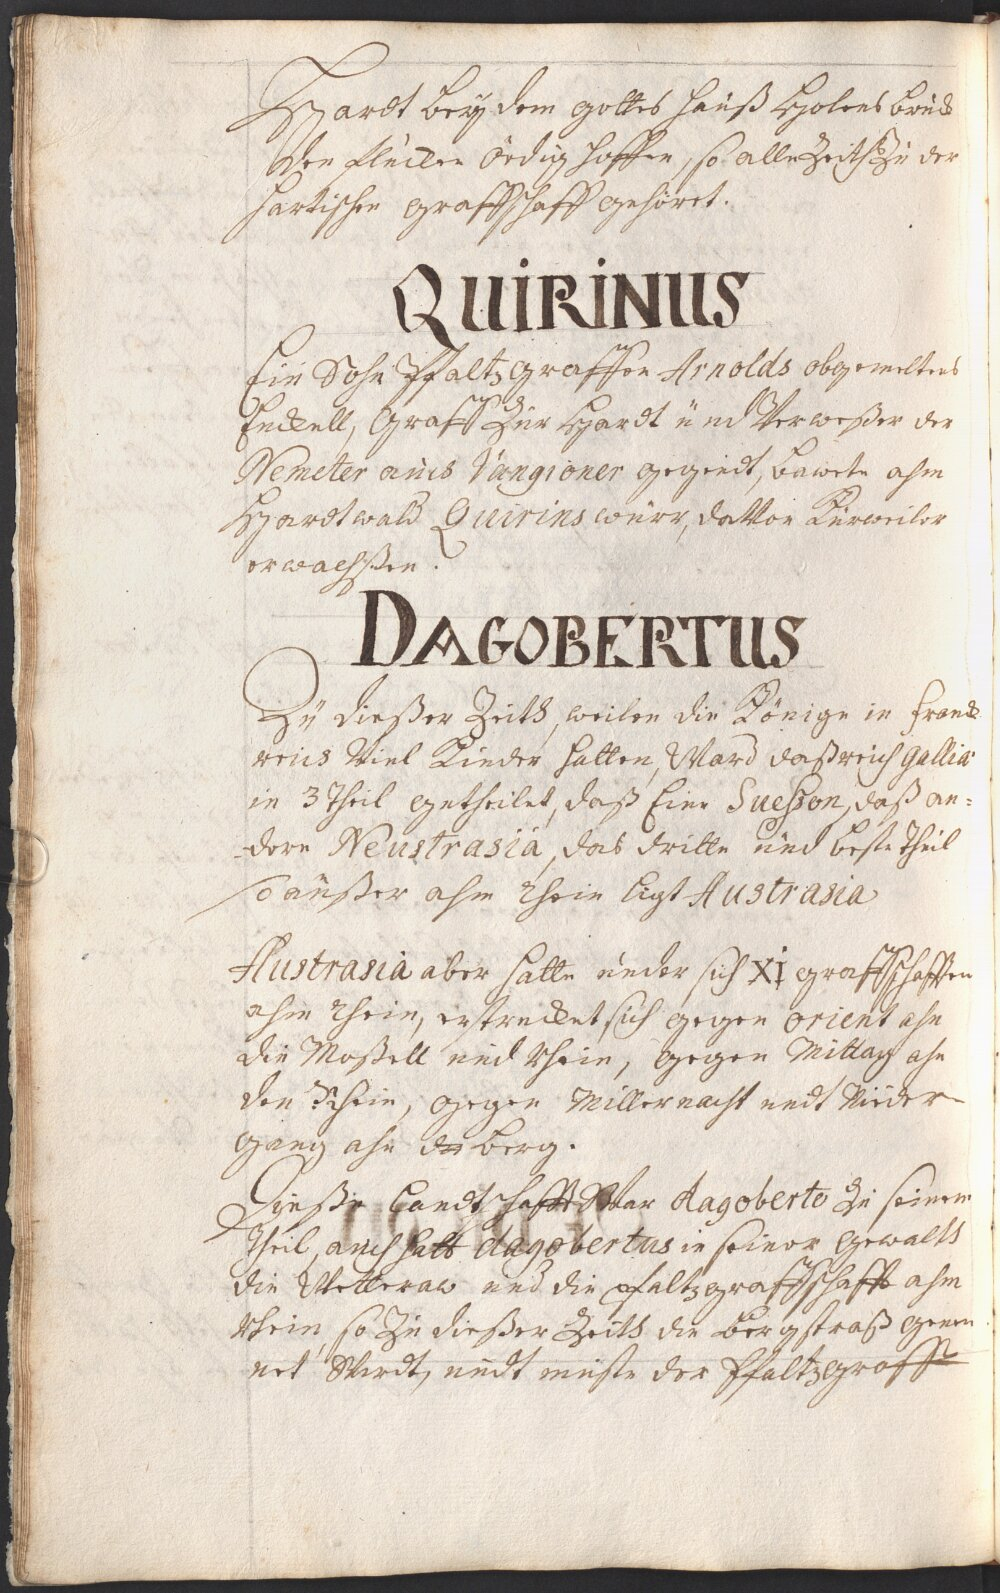 Hardt bey dem gottes hauß Holens bruck
den flecken Ördighoffen, so alle Zeith Zu der
hartischen graffschafft gehöret.
QUIRINUS
Ein Sohn Pfaltzgraffen Arnolds obgemeltens
Enckell, Graff Zur Hardt und Verweßer der
Nemeter auis Vangioner gegendt, bawete ahm
Hardtwald Quirinswürr, davon Kürweiler
erwachßen.
DAGOBERTUS
Zu dießer Zeith, weilen die Könige in franck
reich Viel Kinder hatten, Ward daß reich Gallia
in 3 Theil getheilet, daß Eine Suesson, daß an=
dere Neustrasia, das dritte und beste Theil
so außer ahm Rhein ligt Austrasia
Austrasia aber hatte under sich XI graffschafften
ahm Rhein, erstrecket sich gegen orient ahn
die Moßell und Rhein, gegen Mittag ahn
den Rhein, gegen Mitternacht undt Nieder-
gang ahn den berg.
Dieße Landtschafft War dagoberto Zu seinem
Theil, auch hatt dagobertus in seiner gewalth
die Wetteraw und die pfaltzgraffschafft ahm
Rhein, so Zu dießer Zeith die bergstraß genen
net Wirdt, undt muste der Pfaltzgraff